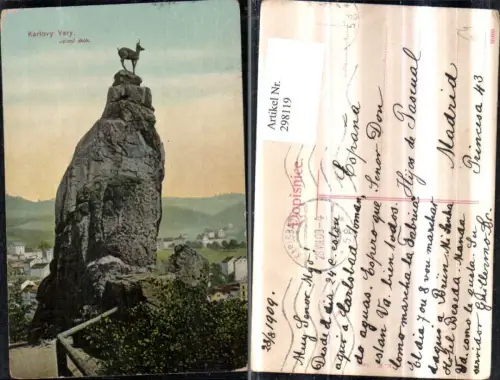 Karlovy Vary.
Jelení skok.
Artikel Nr.
298119
Dopisnice.
España
Señor Don
Hijos de Pascual
Madrid
Princesa 43
31/8 1909.
Muy Señor Mio:
Desde el dia 24 estoy
aqui a Karlsbad toman-
do aguas. Espero que
estan Vs. bien todos.
Como marcha la Fabrica
El dia 7 ou 8 vou marchar
despues a Brünn Mi Senha
Hotel Beseda. Manda
Vd. como le gusta. Su
servidor Guillermo